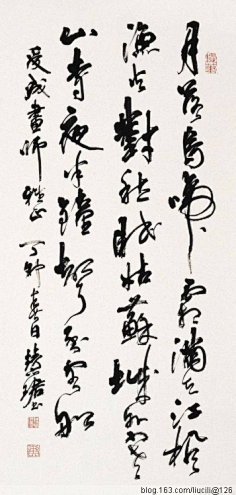 月落烏啼霜滿天江楓
漁火對愁眠姑蘇城外寒
山寺夜半鐘聲到客船
畫師雅正 丁卯春日慧珺書
blog.163.com/liucili@126